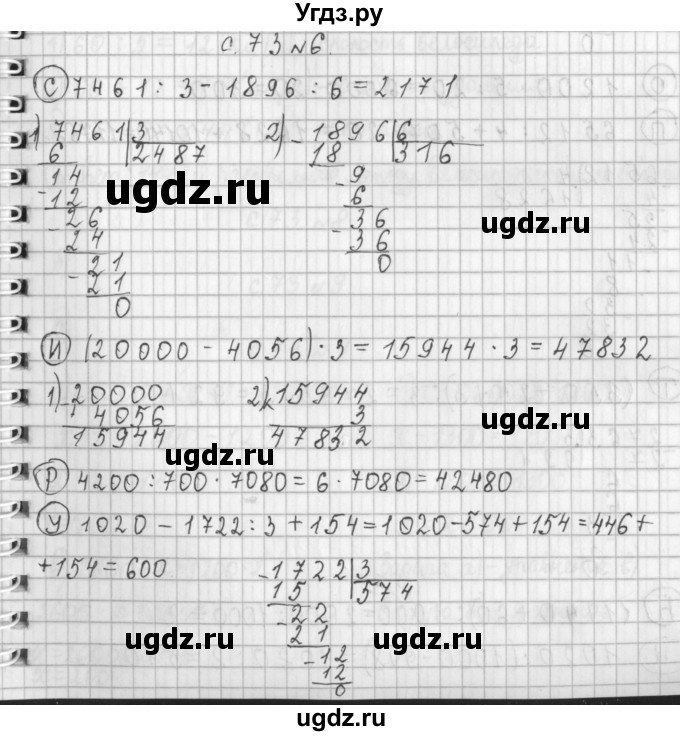 Угдз.ру
с. 73 №6.
С 7461 : 3 - 1896 : 6 = 2171
1) 7461 | 3
6 2487
14
- 12
- 26
24
- 21
21
0
2) - 1896 | 6
18 316
- 9
6
- 36
36
0
ugdz.ru
ugdz.ru
И (20000 - 4056) · 3 = 15944 · 3 = 47832
1) - 20000
4056
15944
2) x 15944
3
47832
ugdz.ru
ugdz.ru
Р 4200 : 700 · 7080 = 6 · 7080 = 42480
У 1020 - 1722 : 3 + 154 = 1020 - 574 + 154 = 446 +
+ 154 = 600
- 1722 | 3
15 574
- 22
21
- 12
12
0
ugdz.ru
ugdz.ru
ugdz.ru